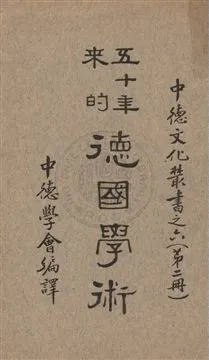 中德文化叢書之六（第二冊）
五十年
来的
德國學術
中德學會編譯